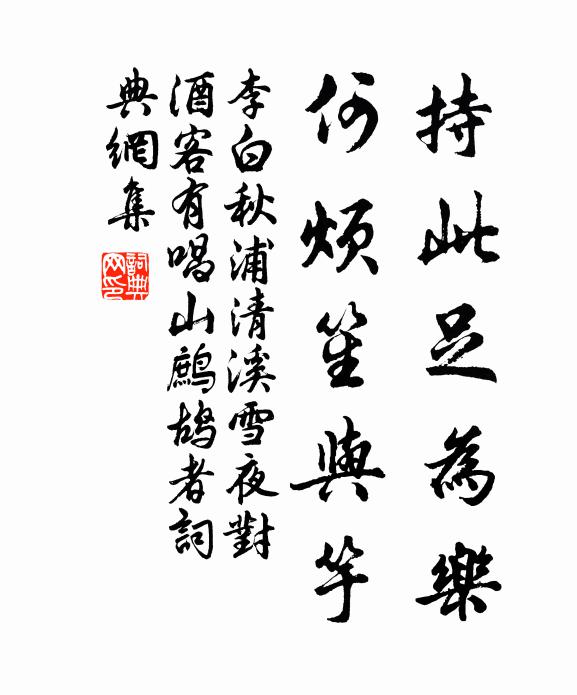 持此足為樂
何煩笙與竽
李白秋浦清溪雪夜對
酒客有唱山鷓鴣者詞
典網集
詞典
网印